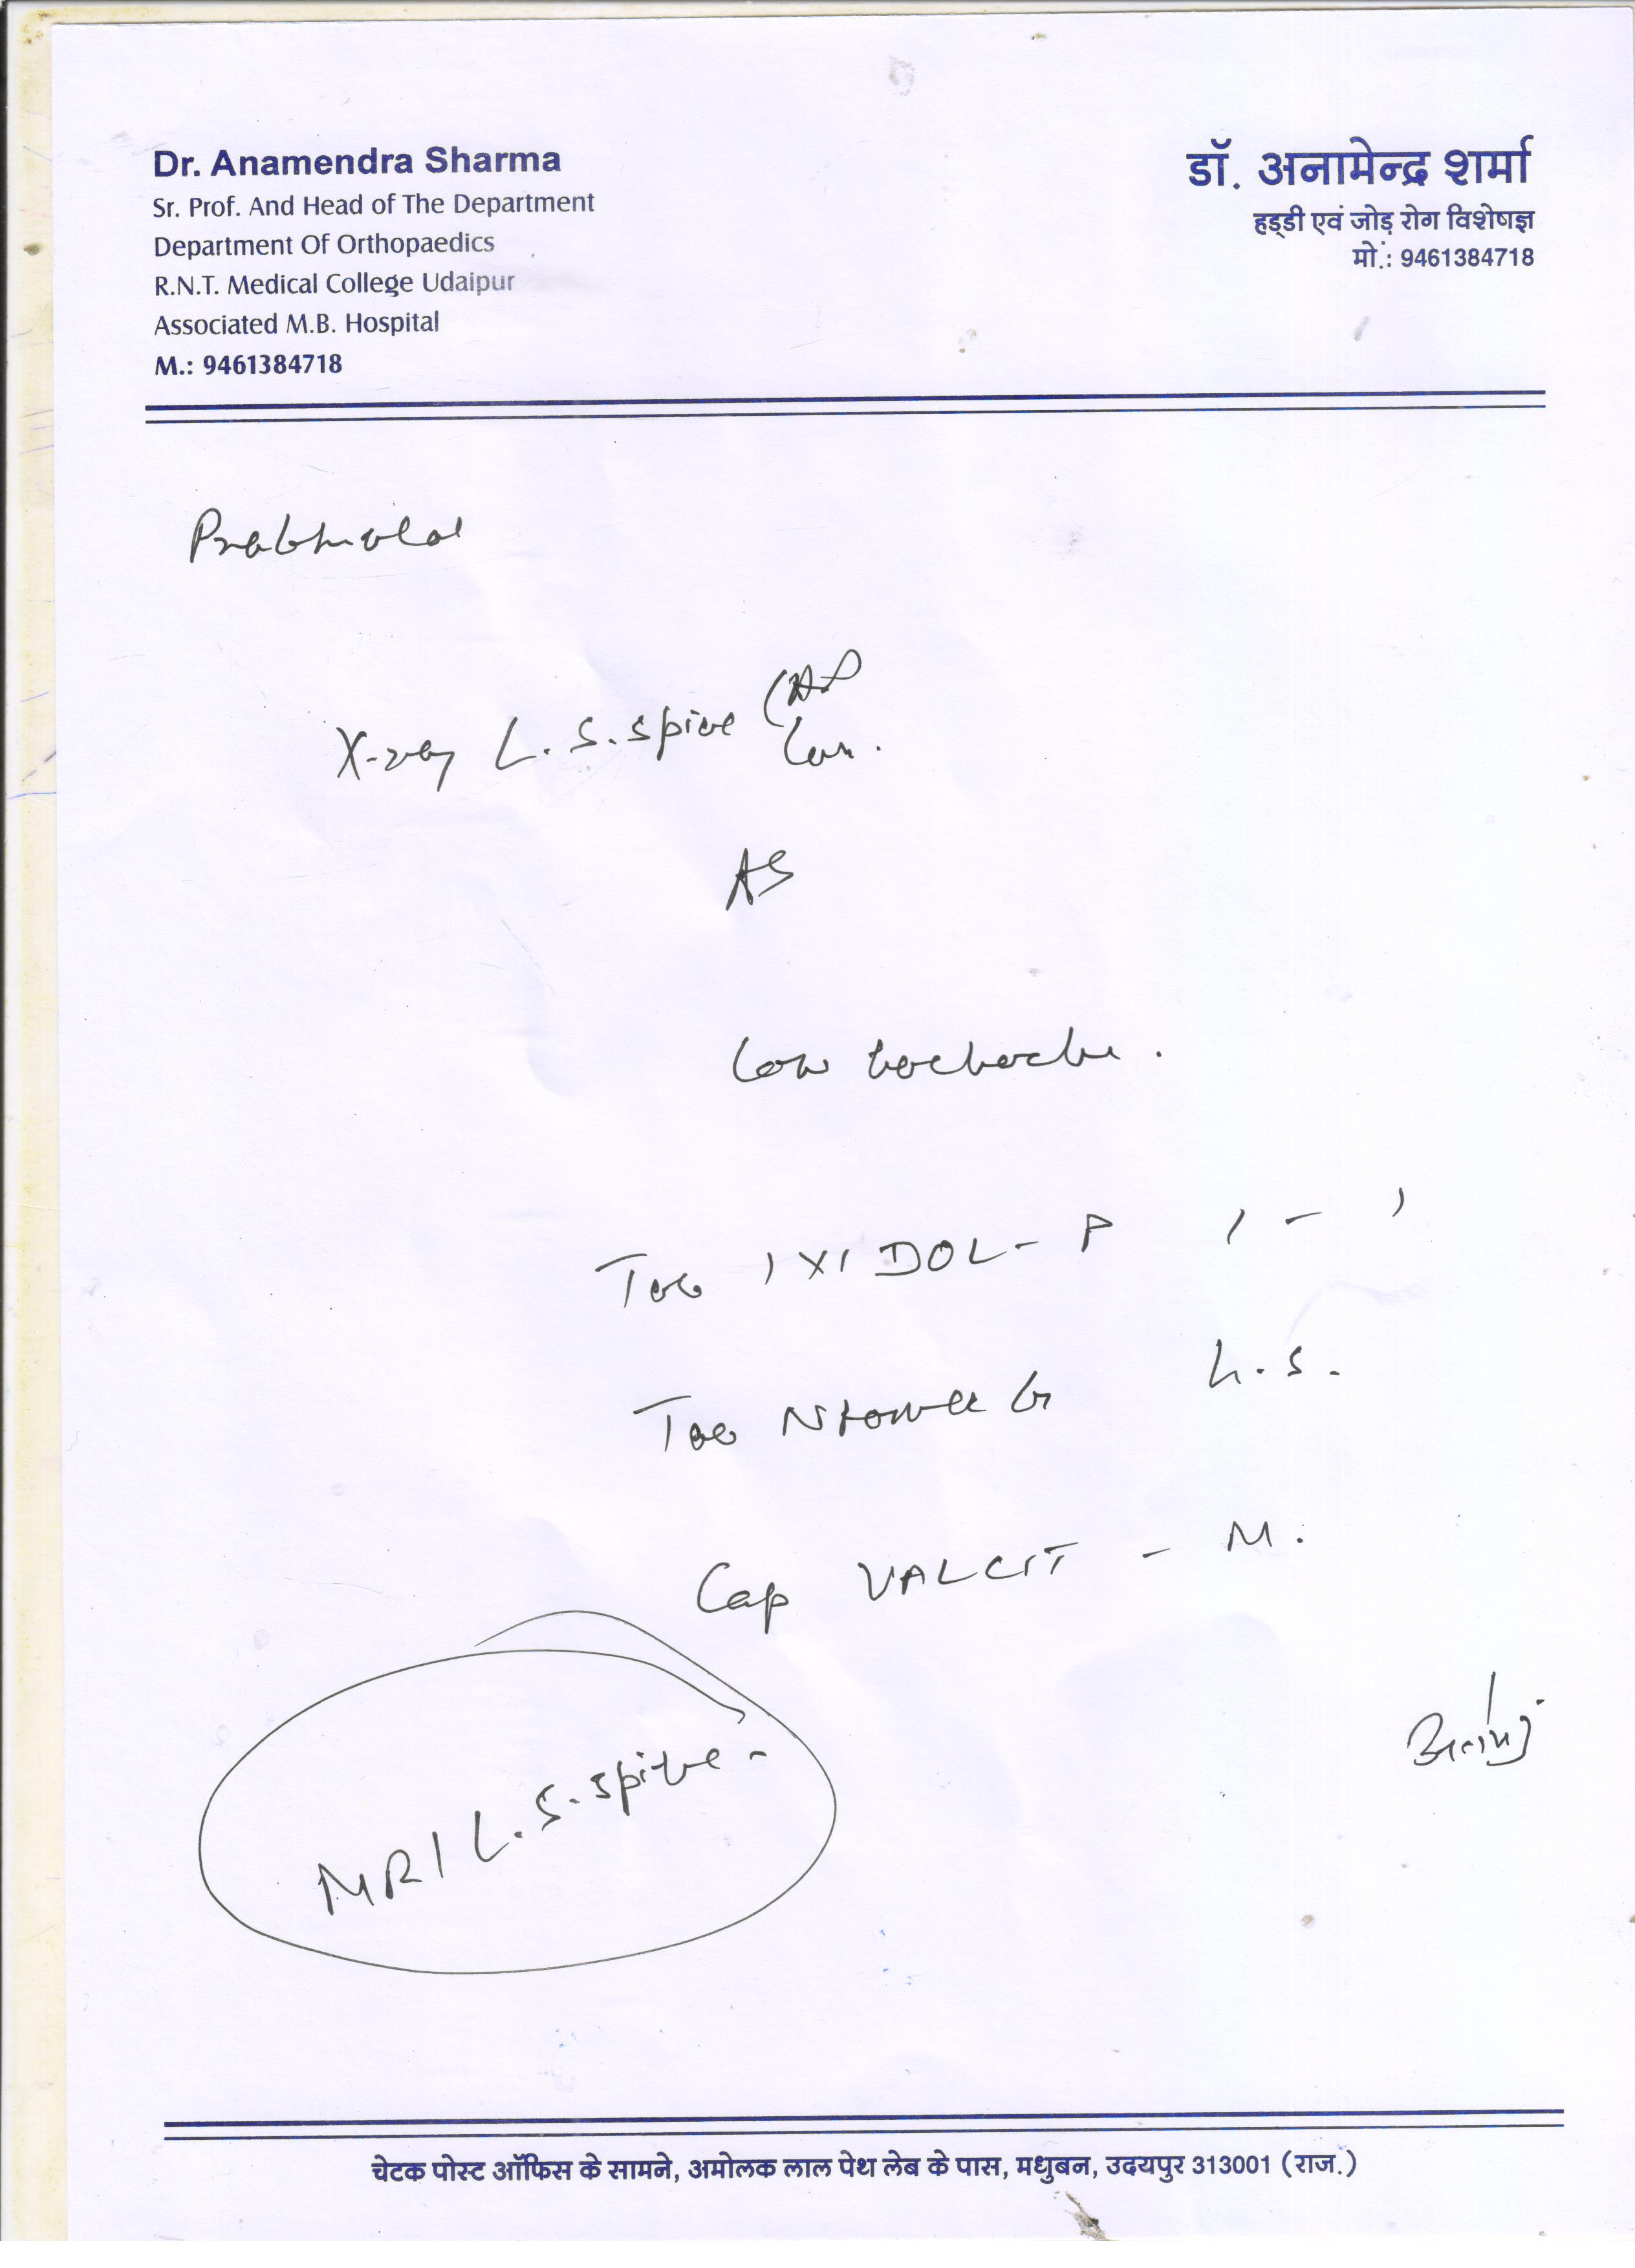 Dr. Anamendra Sharma
Sr. Prof. And Head of The Department
Department Of Orthopaedics
R.N.T. Medical College Udaipur
Associated M.B. Hospital
M.: 9461384718
डॉ. अनामेन्द्र शर्मा
हड्डी एवं जोड़ रोग विशेषज्ञ
मो.: 9461384718
Prabhulal
X-ray L.S. spine (AP
AS
Low backache.
Tab IXIDOL-P 1 - 1
Tab h.s.
Cap VALCIT - M.
MRI L.S. spine -
चेटक पोस्ट ऑफिस के सामने, अमोलक लाल पेथ लेब के पास, मधुबन, उदयपुर 313001 (राज.)